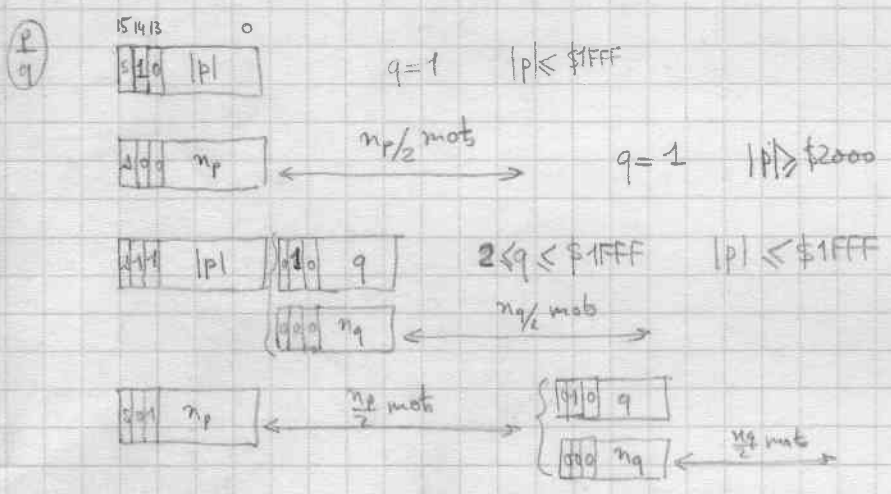 p/q
15 14 13 0
s 1 0 |p| q=1 |p|≤ $1FFF
s 0 0 np np/2 mots q=1 |p|≥ $2000
s 1 1 |p| 0 1 0 q 2≤q≤ $1FFF |p| ≤ $1FFF
0 0 0 nq nq/2 mots
s 0 1 np np/2 mots 0 1 0 q
0 0 0 nq nq/2 mots